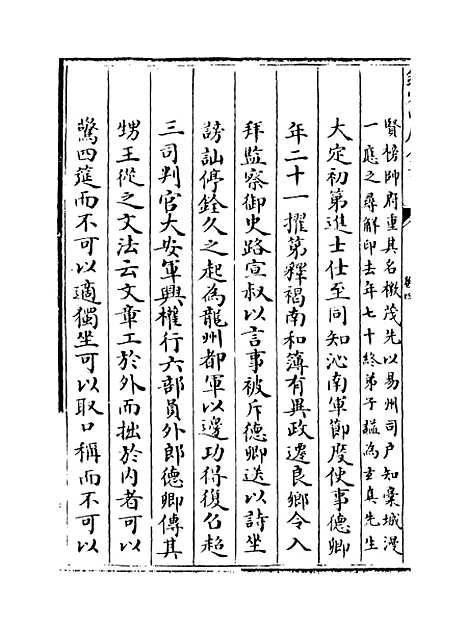 賢榜帥府重其名檄茂先以易州司戶知藁城漫
一應之尋解印去年七十終弟子諡為玄真先生
大定初第進士仕至同知沁南軍節度使事德卿
年二十一擢第釋褐南和簿有異政遷良鄉令入
拜監察御史路宣叔以言事被斥德卿送以詩坐
謗訕停銓久之起為龍州都軍以邊功得復召超
三司判官大安軍興權行六部員外郎德卿傳其
甥王從之文法云文章工於外而拙於內者可以
驚四筵而不可以適獨坐可以取口稱而不可以